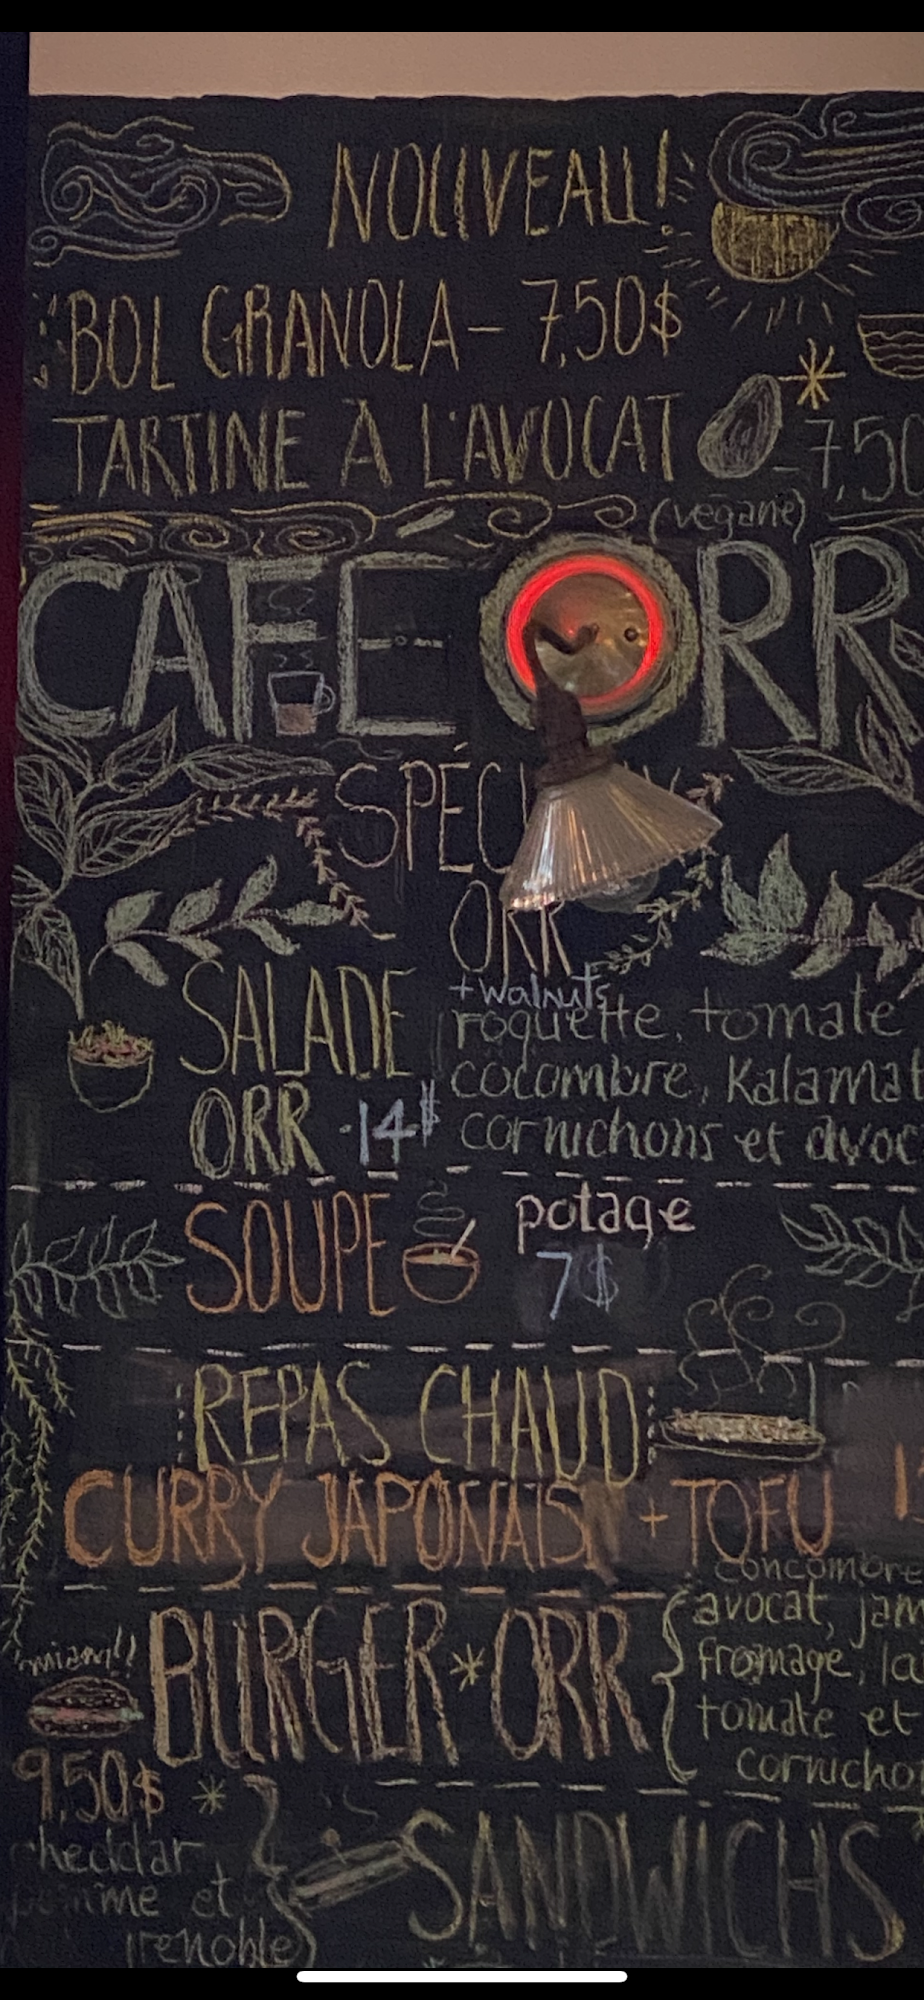 NOUVEAU!
BOL GRANOLA - 7,50$
TARTINE À L'AVOCAT - 7,50
(végane)
CAFÉ ORR
SPÉCI
ORR
SALADE
ORR · 14$
+ walnuts
roquette, tomate
cocombre, Kalamat
cornichons et avoc
SOUPE
potage
7$
REPAS CHAUD
CURRY JAPONAIS + TOFU
BURGER * ORR
concombre
avocat, jam
fromage, la
tomate et
cornicho
miam!!
9,50$ *
cheddar,
pomme et
grenoble
SANDWICHS